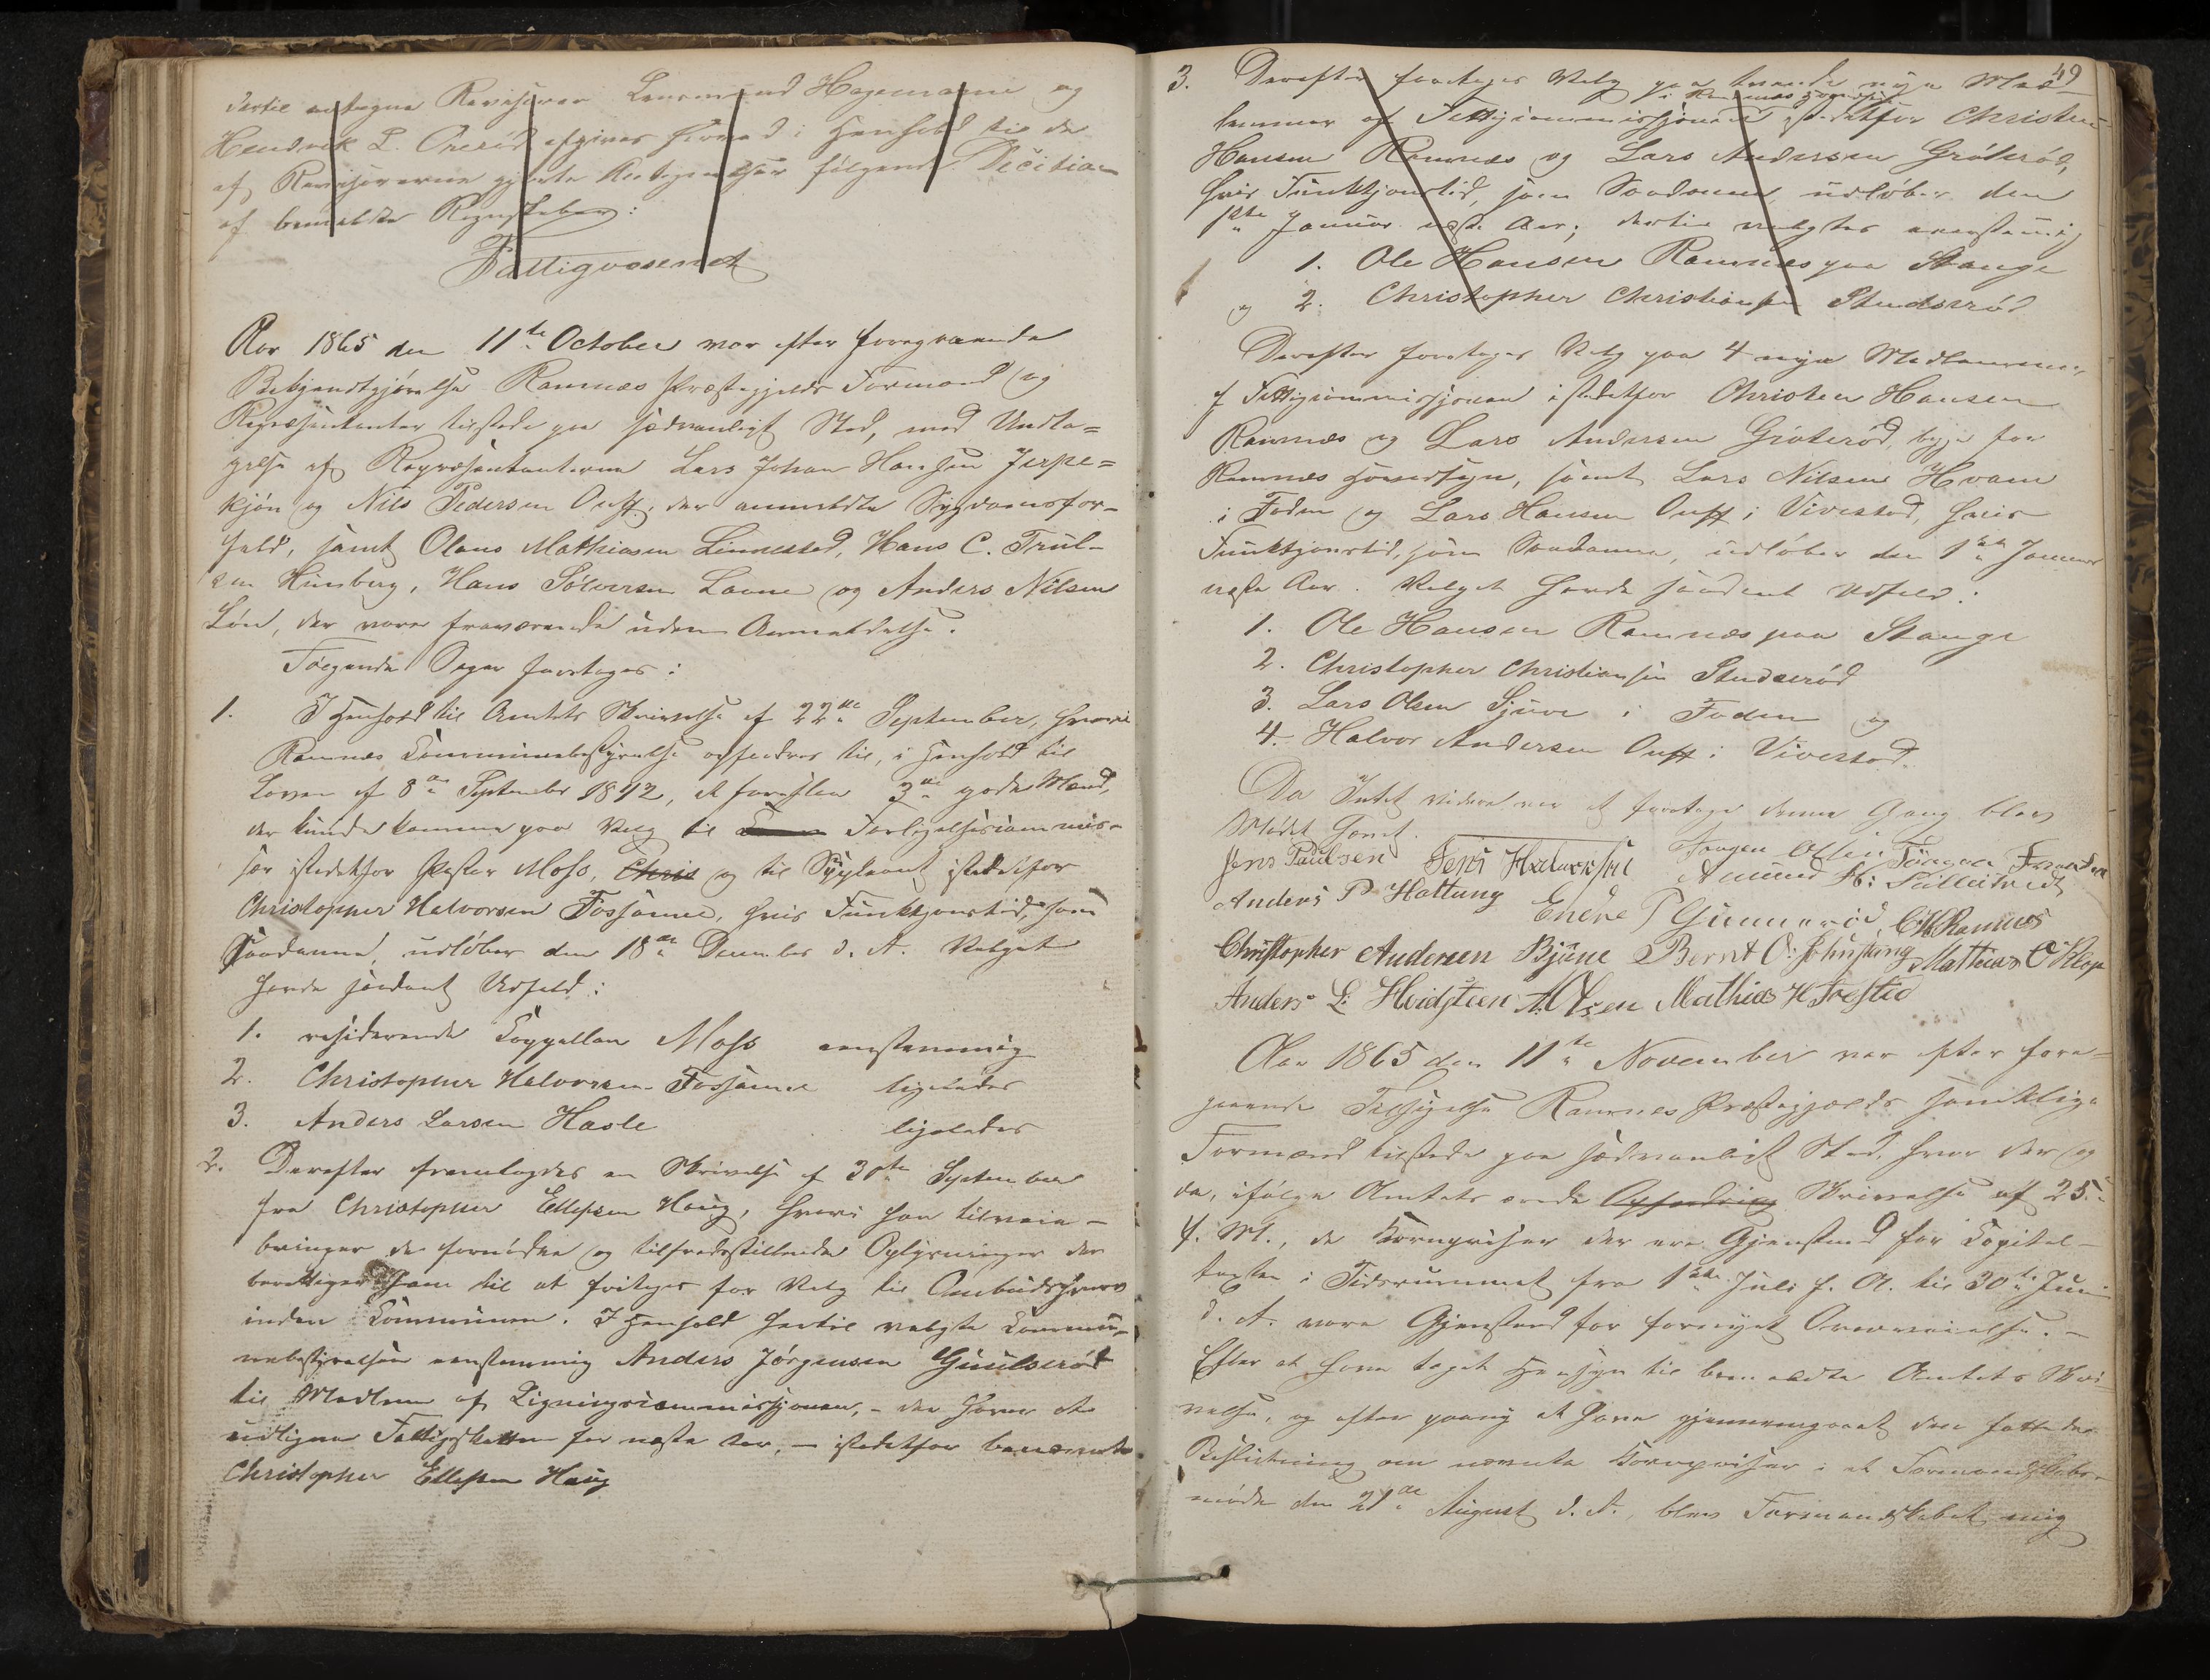 dertil antagne Revisorer Lensmand Hagemann og
Hendrik L. Ore͏rød afgives herved i Henhold til de
af Revisorerne gjorte Antegnelser følgende Decision
af bemeldte Regnskaber:
Fattigvæsenet
Aar 1865 den 11te October var efter foregaaende
Bekjendtgjørelse Ramnæs Præstegjelds Formænd og
Repræsentanter tilstede paa sædvanligt Sted, med Undta=
gelse af Repræsentanterne Lars Johan Hansen Jerpe=
kjøn og Nils Pedersen, der anmeldte Sygdomsfor-
fald, samt Olaus Mathiasen Linnestad, Hans C. Trul-
sen Himberg, Hans Sølversen Laane og Anders Nilsen
Løn, der vare fraværende uden Anmeldelse.
Følgende Sager foretoges:
1. I Henhold til Amtets Skrivelse af 22de September, hvori
Ramnæs Communebestyrelse opfordres til, i Henhold til
Loven af 8de September 1842, at foreslaa 3de gode Mænd,
der kunde komme paa Valg til Forligelsescommis-
sær istedetfor Pastor Moss, Chris og til Suppleant istedetfor
Christopher Halvorsen Fossanne, hvis Funktjonstid, som
Saadanne, udløber den 18de December d. A. Valget
havde saadant Udfald:
1. residerende Cappellan Moss eenstemmig
2. Christopher Halvorsen Fossanne ligeledes
3. Anders Larsen Hasle ligeledes
2. Derefter fremlagdes en Skrivelse af 30te September
fra Christopher Ellefsen Haug, hvori han tilveie-
bringer de fornødne og tilfredsstillende Oplysninger der
berettiger ham til at fritages for Valg til Ombudshverv
inden Communen. I Henhold hertil valgte Commu-
nebestyrelsen eenstemmig Anders Jørgensen Guulserød
til Medlem af Ligningscommissjonen, - der haver at
udligne Fattigskatten for næste Aar, - istedetfor benævnte
Christopher Ellefsen Haug
49
3. Derefter foretoges Valg paa tvende nye Med-
i Ramnæs Hovedsogn
lemmer af Fattigcommissjonen istedetfor Christen
Hansen Ramnæs og Lars Andersen Gröterød,
hvis Funktjonstid, som Saadanne, udløber den
1ste Januar næste Aar; dertil valgtes eenstemmig
1. Ole Hansen Ramnæs paa Stange
og 2. Christopher Christiansen Studserød
Derefter foretoges Valg paa 4 nye Medlemmer
af Fattigcommissjonen istedetfor Christen Hansen
Ramnæs og Lars Andersen Gröterød, begge for
Ramnæs Hovedsogn, samt Lars Nilsen Hvam
i Foden og Lars Hansen i Vivestad, hvis
Funktjonstid, som Saadanne, udløber den 1ste Januar
næste Aar. Valget havde saadant Udfald:
1. Ole Hansen Ramnæs paa Stange
2. Christopher Christiansen Studserød
3. Lars Olsen Sjuve i Foden og
4. Halvor Andersen i Vivestad.
Da Intet videre var at foretage denne Gang blev
Mødet hævet.
Jens Paulsen
Anders P Hattung Endre P Gunnerød, C. H. Ramnæs
Christopher Andersen Bjune Bernt O: Mathias O Klop
Anders L: Hvidsteen A. Olsen Mathias H Trestad
Aar 1865 den 11te November var efter fore-
gaaende Tilsigelse Ramnes Præstegjælds samtlige
Formænd tilstede paa sædvanligt Sted, hvor der og
da, ifølge Amtets ærede Opfordring Skrivelse af 25.
f. M., de Kornpriser der ere Gjenstand for Capitel-
taxten i Tidsrummet fra 1ste Juli f. A. til 30te Juni
d. A. vare Gjenstand for fornyet Overveielse. -
Efter at have taget Hensyn til bemeldte Amtets Skri-
velse, og efter paany at have gjennemgaaet den fattede
Beslutning om nævnte Kornpriser i et Formandskabs-
møde den 21de August d. A., blev Formandskabet enig